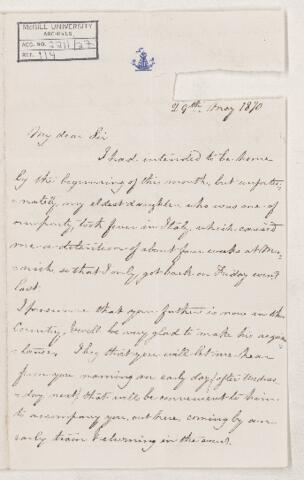 McGILL UNIVERSITY
ARCHIVES
ACC. NO. 2211/27
REF. 1/4
29th May 1870
My dear Sir
I had intended to be home
by the beginning of this month, but unfortu-
-nately, my eldest daughter who was one of
our party, took fever in Italy, which caused
me a detention of about four weeks at Mu-
-nich, so that I only got back on Friday even
last.
I presume that your father is now in this
Country, & will be very glad to make his acquain
-tance. I beg that you will let me hear
from you naming an early day (after Wednes-
-day next) that will be convenient to him
to accompany you out here, coming by an
early train & returning in the evens.